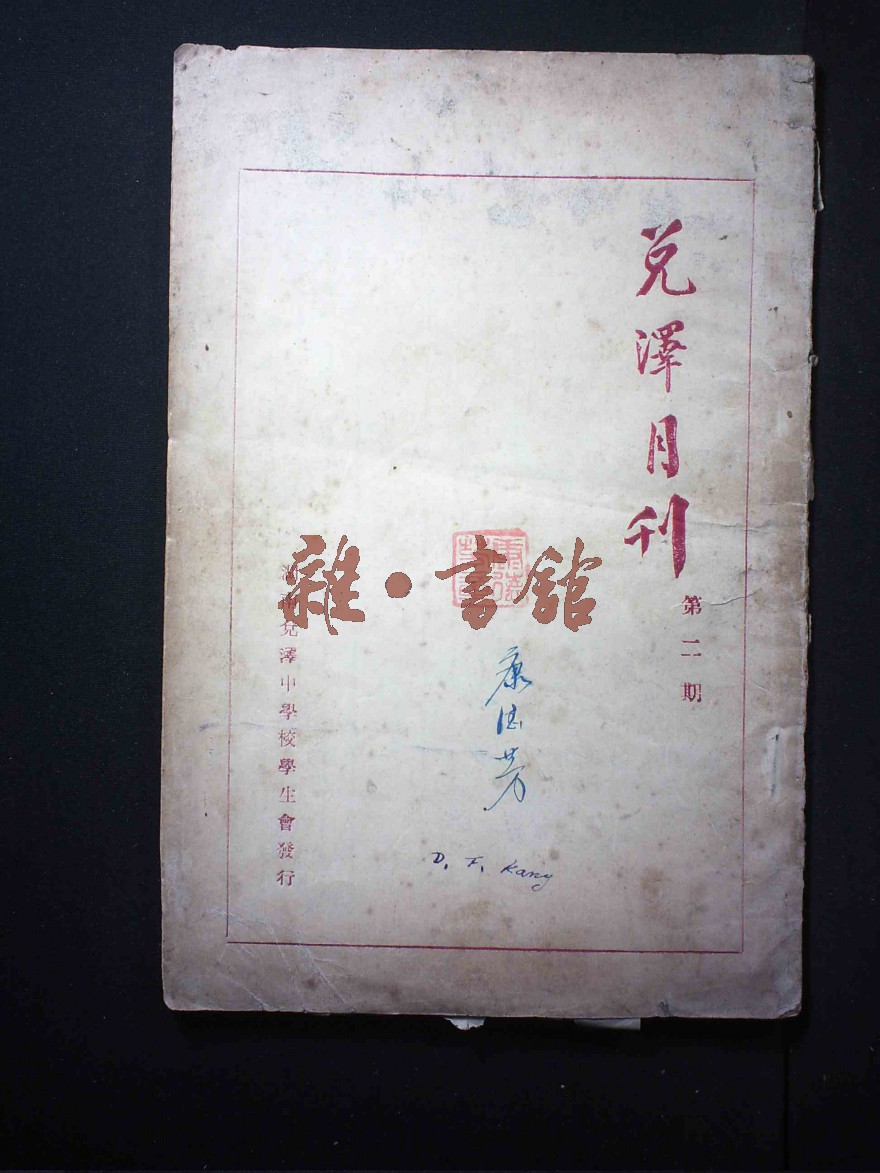 兌澤月刊
第二期
雜·書館
康德芳
湖南兌澤中學校學生會發行
D. F. Kang